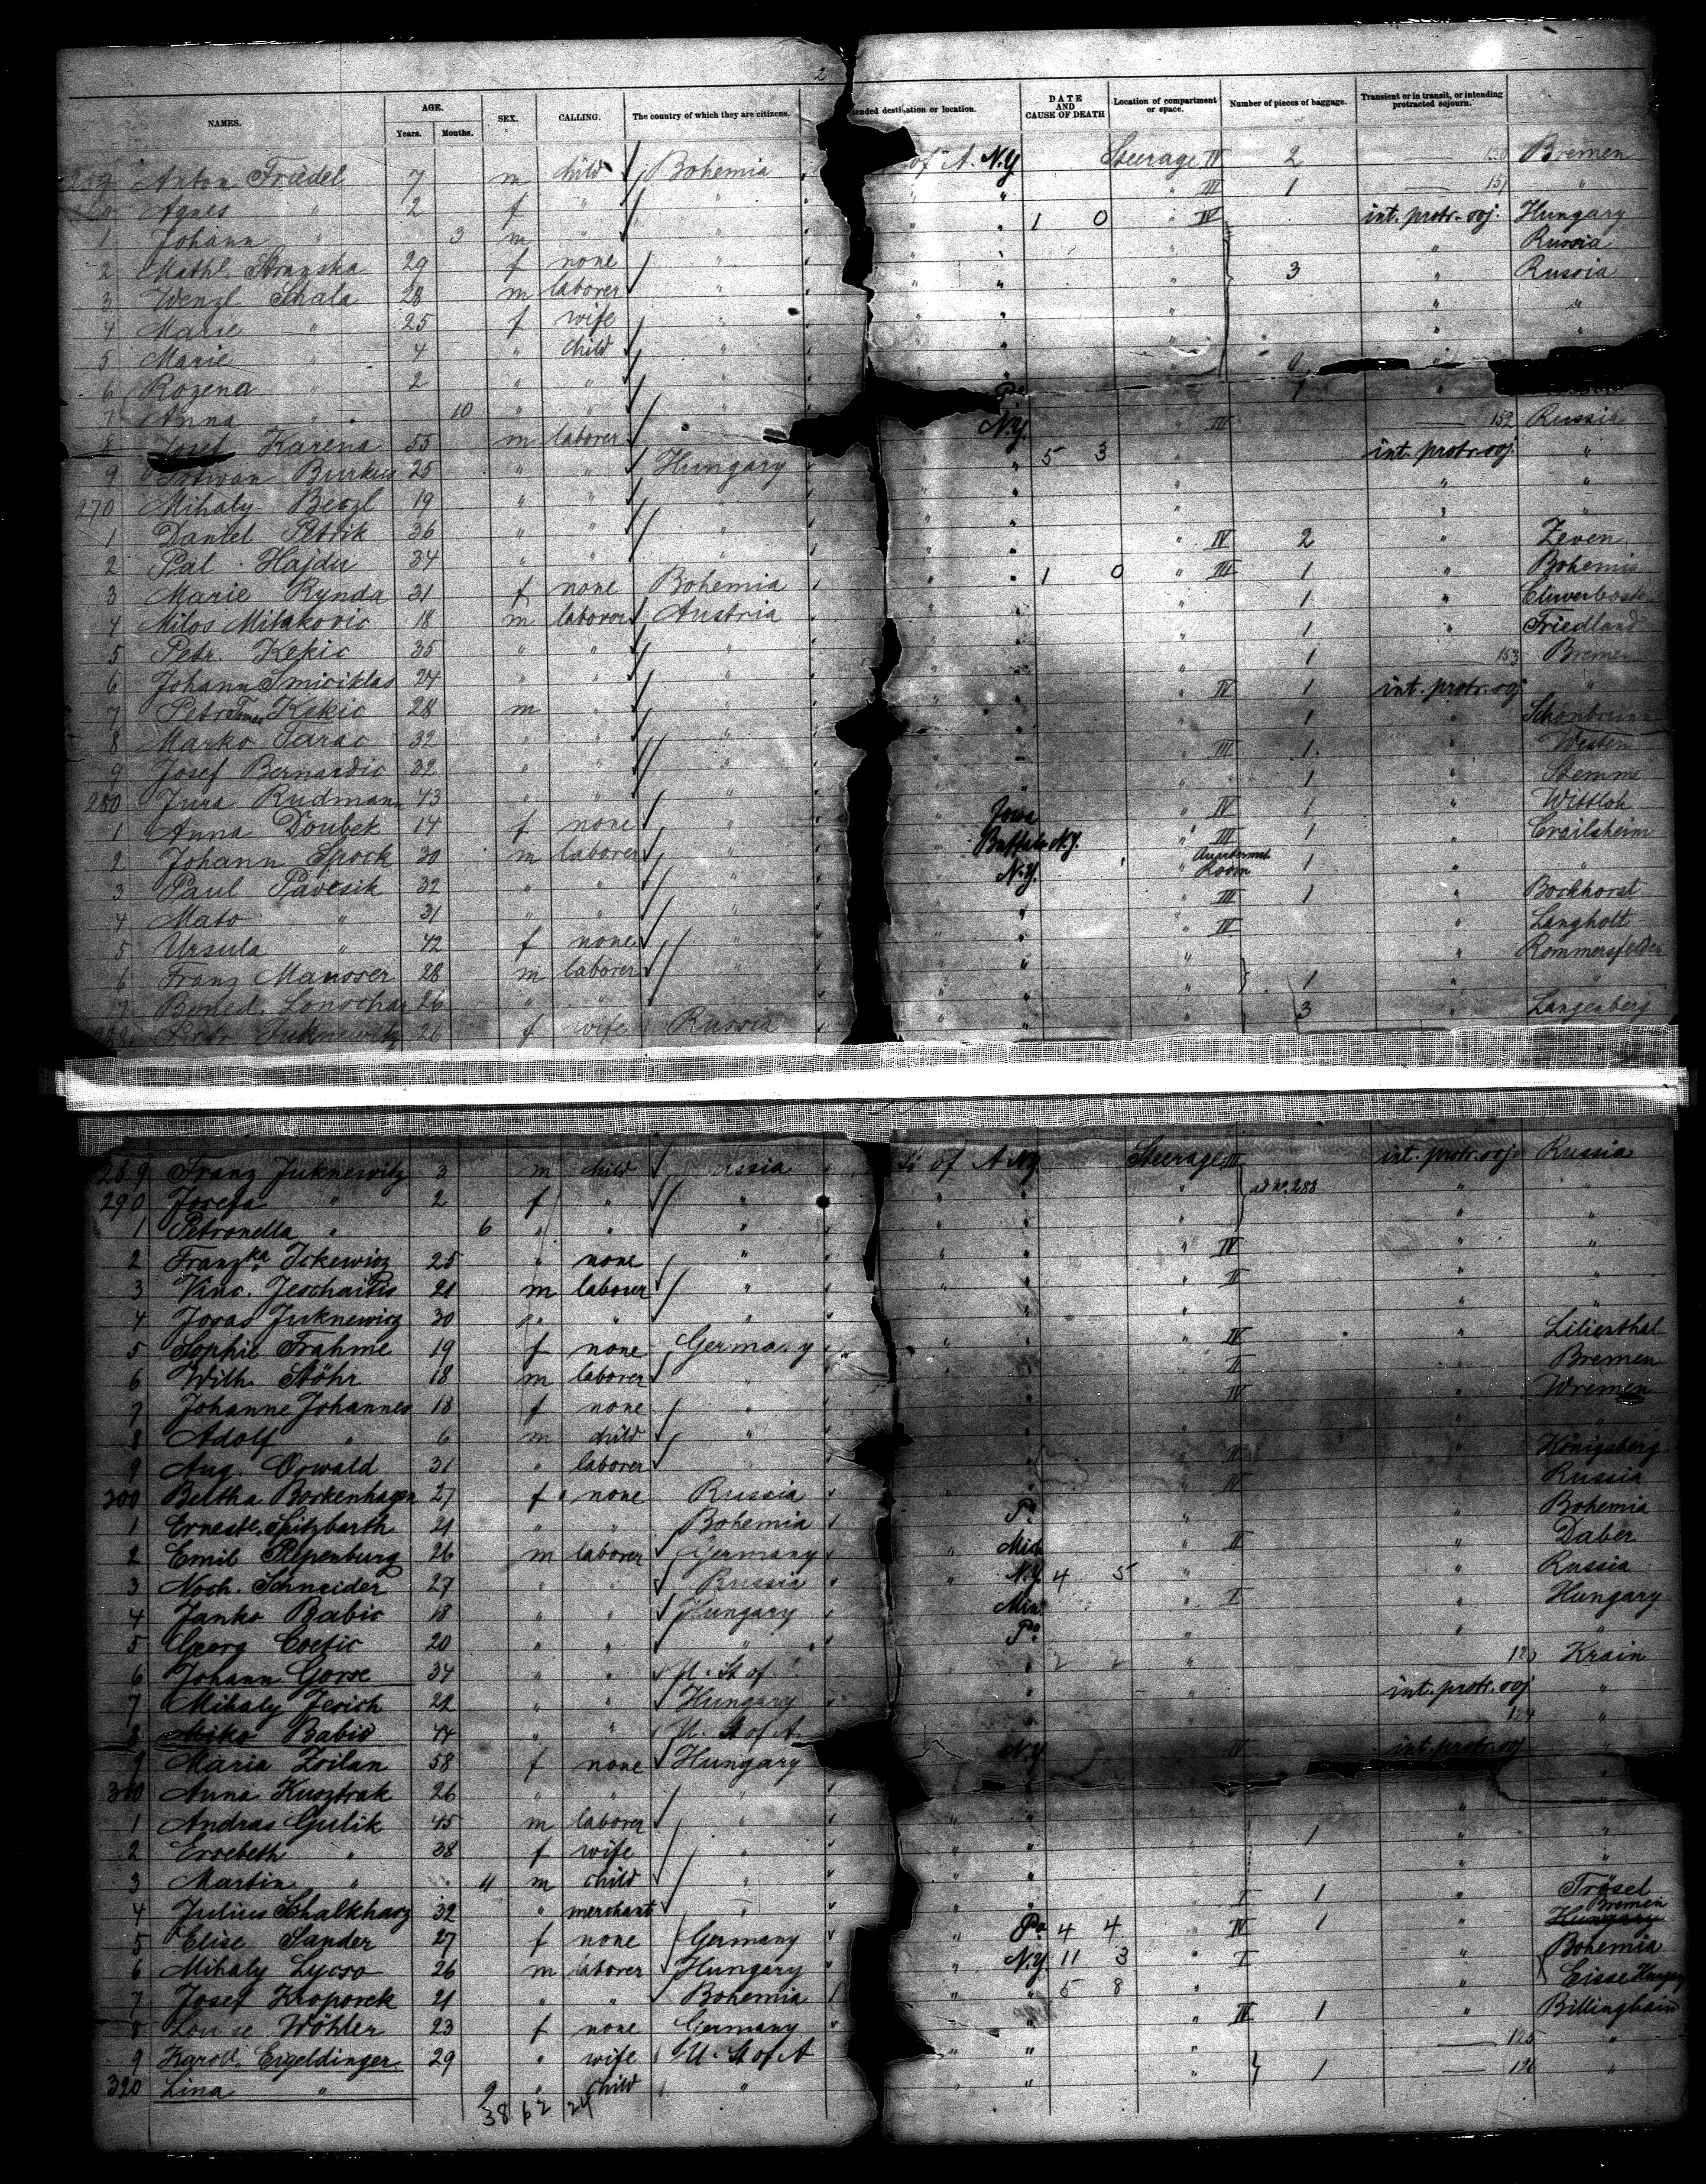 2
NAMES. AGE. Years. Months. SEX. CALLING. The country of which they are citizens. tended destination or location. DATE AND CAUSE OF DEATH Location of compartment or space. Number of pieces of baggage. Transient or in transit, or intending protracted sojourn.
259 Anton Friedel 7 m child Bohemia of A. N.Y Steerage IV 2 150 Bremen
Agnes " 2 f " " " III 1 151 "
1 Johann " 3 m " " " 1 0 " IV int. protr. soj. Hungary
2 Mathl. 29 f none " " Russia
3 Wenzl Skala 28 m laborer " " 3 " Russia
4 Marie " 25 f wife " " " "
5 Marie " 4 " child " " " "
6 Rozena " 2 " " " "
7 Anna " 10 " " " Pa 1 "
8 Josef Karena 55 m laborer " N.Y. " III 152 Russia
9 Istwan Burkus 25 " " Hungary " 5 3 " int. protr. soj. "
270 Mihaly 19 " " " " " " "
1 Daniel Petrik 36 " " " " " " "
2 Pal Hajdu 34 " " " " " IV 2 " Zeven
3 Marie Rynda 31 f none Bohemia " 1 0 " III 1 " Bohemia
4 Milos Mitakovic 18 m laborer Austria " " 1 "
5 Petr. Kekic 35 " " " " " 1 " Friedland
6 Johann Smiciklas 24 " " " " " 1 153 Bremen
7 Petr Tomas Kekic 28 m " " " " IV 1 int. protr. soj. "
8 Marko Sarac 32 " " " " " 1 " Schönbrunn
9 Josef Bernardic 32 " " " " " III 1 " Westen
280 Jura Rudmann 43 " " " " " 1 " Stemme
1 Anna Doubek 14 f none " Iowa " IV 1 " Wittloh
2 Johann Spock 30 m laborer " Buffalo N.Y. " III 1 " Crailsheim
3 Paul Pavesik 32 " " " N.Y. " Room 1 " "
4 Mato " 31 " " " " " III 1 " Bockhorst
5 Ursula " 42 f none " " " IV " Langholt
6 Franz Manoser 28 m laborer " " " " Rommersfelden
7 Bened. Lonochar 26 " " " " " 1 " "
288 26 f wife Russia " " 3 " Langenberg
289 Franz Juknewitz 3 m child ussia St of A N.Y Steerage III int. protr. soj. Russia
290 Josefa " 2 f " " " " ad No. 288 " "
1 Petronella " 6 " " " " " " "
2 Franzka Ickewicz 25 " none " " " IV " "
3 Vinc. Jeschaitis 21 m laborer " " " II " "
4 Joras Juknewicz 30 " " " " " " "
5 Sophie Frahme 19 f none Germany " " IV " Lilienthal
6 Wilh. Stöhr 18 m laborer " " " II " Bremen
7 Johanne Johannes 18 f none " " " IV " Wremen
8 Adolf " 6 m child " " " " "
9 Aug. Oswald 31 " laborer " " " IV " Königsberg
300 Beltha Borkenhagen 27 f none Russia " " IV " Russia
1 Erneste. Spitzbarth 21 " " Bohemia Pa " " Bohemia
2 Emil Piepenburg 26 m laborer Germany Mich " II " Daber
3 Noch. Schneider 27 " " Russia N.Y 4 5 " " Russia
4 Janko Babic 18 " " Hungary Min. " I " Hungary
5 Georg Cvetic 20 " " " Pa " " "
6 Johann Gorse 34 " " U. St of " 2 2 " 123 Krain
7 Mihaly Jesich 22 " " Hungary " " int. protr. soj. "
8 Miko Babic 44 " " U. St of A " " 124 "
9 Maria Zoilan 58 f none Hungary N.Y. " IV int. protr. soj "
310 Anna Kusztrak 26 " " " " " "
1 Andras Gulik 45 m laborer " " " " "
2 Erzebeth " 38 f wife " " " 1 " "
3 Martin " 11 m child " " " " "
4 Julius Schalkhaz 32 " merchant " " " I 1 " Trösel
5 Elise Sander 27 f none Germany Pa 4 4 " IV 1 " Hungary Bremen
6 Mihaly Lycso 26 m laborer Hungary N.Y 11 3 " I " Bohemia
7 Josef Kroporek 21 " " Bohemia " 5 8 " " Eisse Hungary
8 Louise Wöhler 23 f none Germany " " IV 1 " Billingbain
9 Karol. Eigeldinger 29 " wife U. St of A " " 125 "
320 Lina " 9 " child " " " 1 126 "
38 62 24